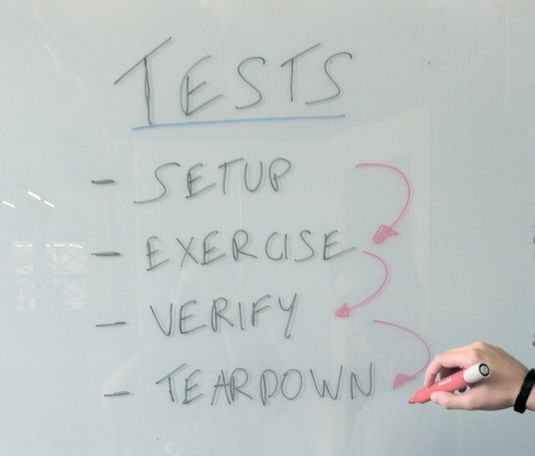 TESTS
- SETUP
- EXERCISE
- VERIFY
- TEARDOWN